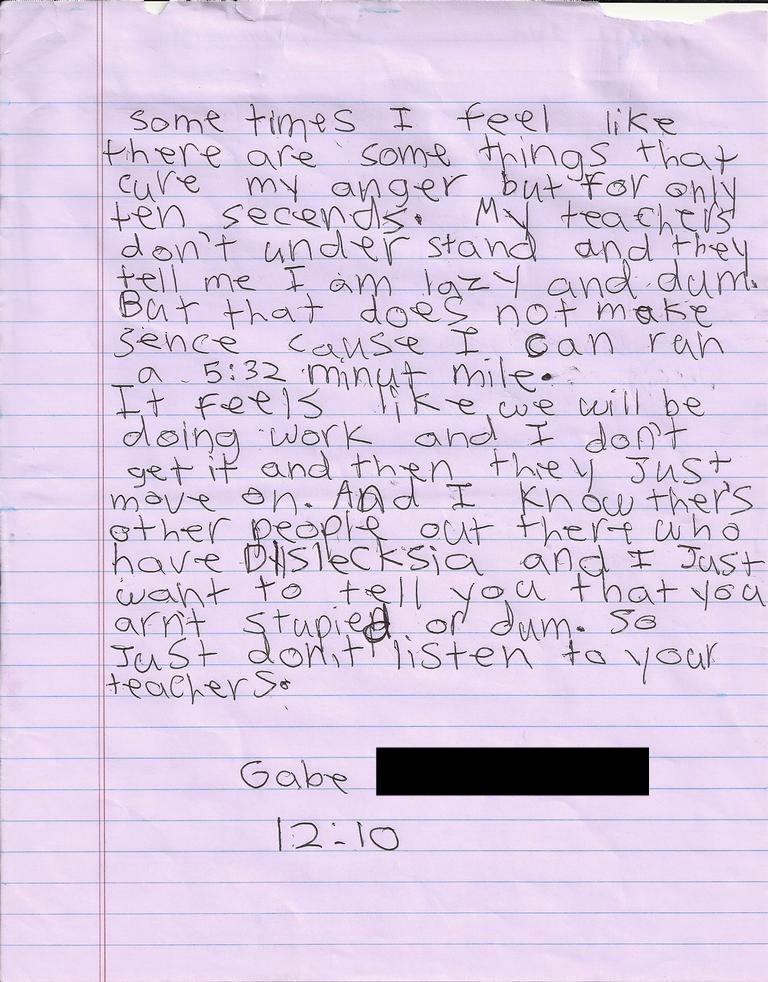 some times I feel like
there are some things that
cure my anger but for only
ten secends. My teachers
don't under stand and they
tell me I am lazy and dum.
But that does not make
sence cause I can run
a 5:32 minut mile.
It feels like we will be
doing work and I don't
get it and then they Just
move on. And I know ther's
other people out there who
have Dyslecksia and I Just
want to tell you that you
arn't stupied or dum. So
Just don't listen to your
teachers.
Gabe
12-10